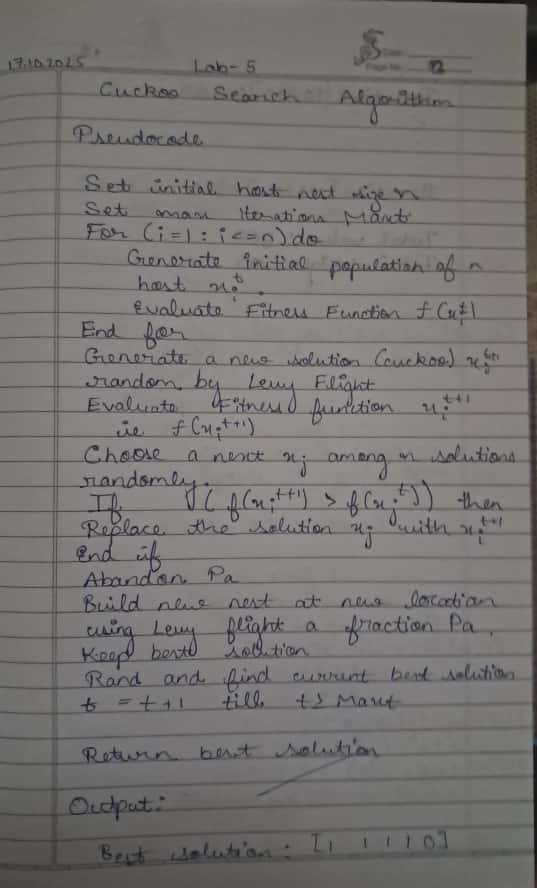 17.10.2025 Lab-5
Cuckoo Search Algorithm
Pseudocode
Set initial host nest size n
Set max Iterations Maxt
For (i=1 : i<=n) do
Generate initial population of n
host xᵢᵗ.
Evaluate Fitness Function f(xᵢᵗ)
End for
Generate a new solution (cuckoo) xᵢ
random by Levy Flight
Evaluate Fitness function xᵢᵗ⁺¹
ie f(xᵢᵗ⁺¹)
Choose a nest xj among n solutions
randomly.
If (f(xᵢᵗ⁺¹) > f(xjᵗ)) then
Replace the solution xj with xᵢᵗ⁺¹
End if
Abandon Pa
Build new nest at new location
using Levy flight a fraction Pa.
Keep best solution
Rand and find current best solution
t = t+1 till t≥Maxt
Return best solution
Output:
Best solution: [1 1 1 1 0]